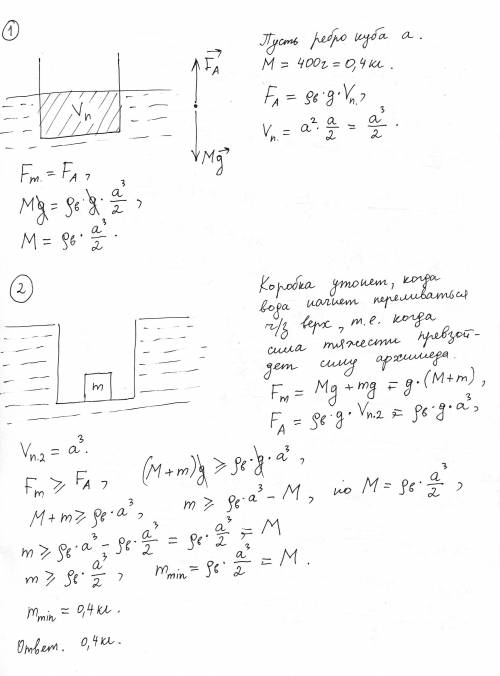 1
Пусть ребро куба a.
M = 400г = 0,4 кг.
F_A = ρв·g·Vп.,
Vп. = a²·a/2 = a³/2.
Vп
F_A
Mg
Fт = F_A,
Mg = ρв·g·a³/2,
M = ρв·a³/2.
2
Коробка утонет, когда
вода начнет переливаться
ч/з верх, т.е. когда
сила тяжести превзой-
дет силу архимеда.
Fт = Mg + mg = g·(M+m),
F_A = ρв·g·Vп.2 = ρв·g·a³,
m
Vп.2 = a³.
Fт ⩾ F_A, (M+m)g ⩾ ρв·g·a³,
M+m ⩾ ρв·a³, m ⩾ ρв·a³ − M, но M = ρв·a³/2,
m ⩾ ρв·a³ − ρв·a³/2 = ρв·a³/2 = M
m ⩾ ρв·a³/2, m min = ρв·a³/2 = M.
m min = 0,4 кг.
Ответ. 0,4 кг.